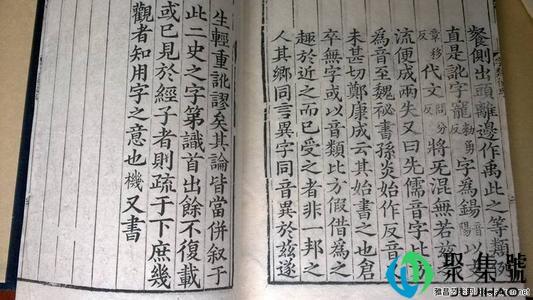 餐側出頭離邊作禹此之等類
直是訛字寵勑勇反字為錫音以支
章移反代文問分反將死混無若茲
流便成兩失又曰先儒音字比方
為音至魏祕書孫炎始作反音又
未甚切鄭康成云其始書之也倉
卒無字或以音類比方假借為之
趣於近之而已受之者非一邦之
人其鄉同言異字同音異於茲遂
生輕重訛謬矣其論皆當併叙于
此二史之字第識首出餘不復載
或已見於經子者則疏于下庶幾
觀者知用字之意也 機又書
聚集號
JUJIHAO